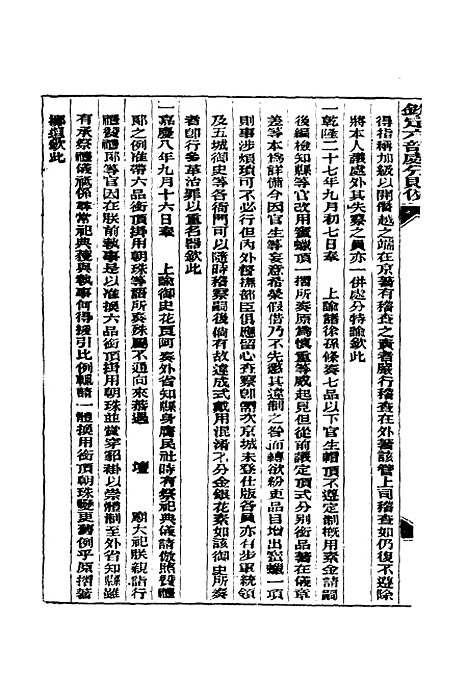 欽定六部處分則例
得指稱加級以開僭越之端在京著有稽查之責者嚴行稽查在外著該管上司稽查如仍復不遵除
將本人議處外其失察之員亦一併處分特諭欽此
一乾隆二十七年九月初七日奉　上諭諸徐孫條奏七品以下官生帽頂不遵定制概用素金請嗣
後編檢知縣等官改用蜜蠟頂一摺所奏原為慎重等威起見但從前議定頂式分別銜品著在儀章
差等本為詳備今因官生等妄意希榮假借乃不先懲其違制之咎而轉欲紛更品目增出蜜蠟一項
則事涉煩瑣可不必行但內外督撫部臣俱應留心查察即爾次京城未登仕版各員亦有步軍統領
及五城御史等各衙門可以隨時稽察嗣後倘有故違成式戴用混淆不分金銀花素如該御史所奏
者即行參革治罪以重名器欽此
一嘉慶八年九月十六日奉　上諭御史花良阿奏外省知縣身膺民社時有祭祀典儀請倣照贊禮
郎之例准帶六品銜頂掛用朝珠等語所奏殊屬不通向來恭遇　壇　廟大祀朕親詣行
禮贊禮郎等官因在朕前執事是以准換六品銜頂掛用朝珠並賞穿貂褂以崇體制至外省知縣雖
有承祭禮儀祇係尋常祀典穫與執事何得援引比例輒請一體換用銜頂朝珠變更舊例乎原摺著
擲還欽此